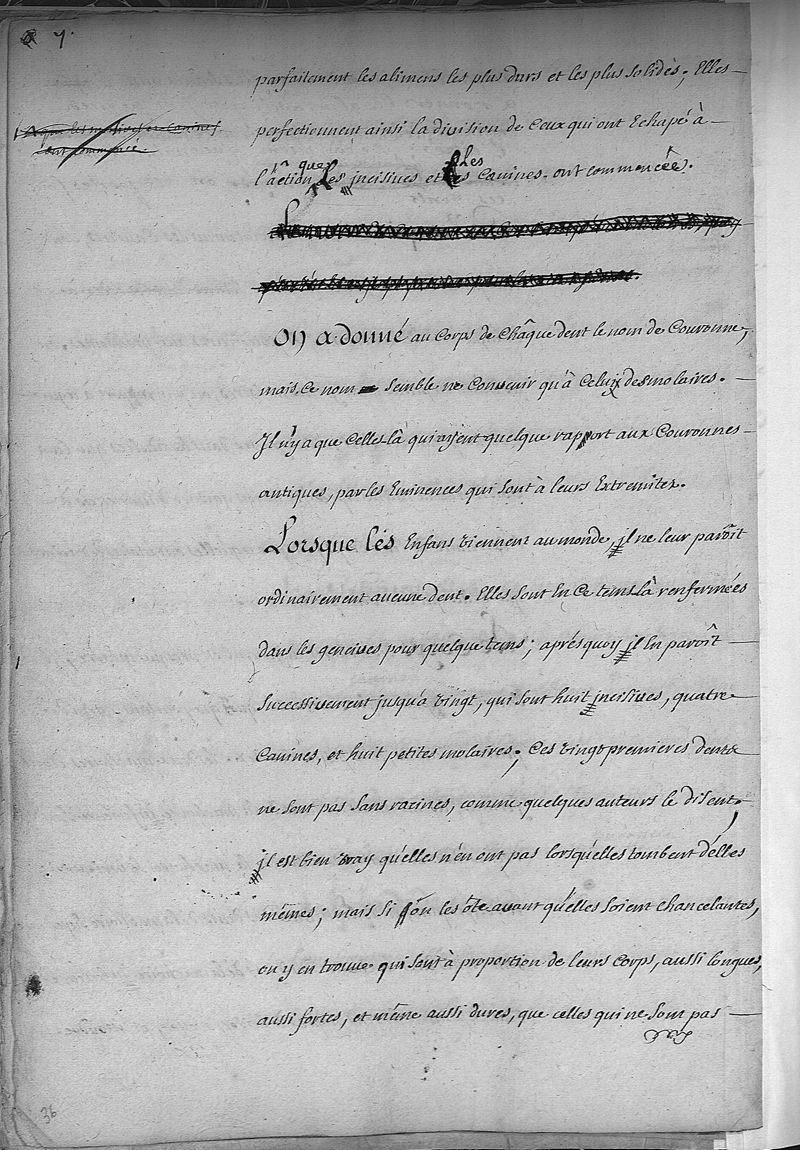 7.
parfaitement les alimens les plus durs et les plus solides; Elles
que les incisives et Canines
ont commencé.
perfectionnent ainsi la division de Ceux qui ont Echapé à
que les
l'action les incisives et les Canines. ont commencée.
On a donné au Corps de Châque dent le nom de Couronne,
mais, ce nom semble ne Convenir qu'à Celuy des molaires.
Il n'y a que Celles là qui ayent quelque rapport aux Couronnes
antiques, par les Eminences qui sont à leurs Extremitez.
Lorsque les Enfans viennent au monde, il ne leur parôit
ordinairement aucune dent. Elles sont En Ce tems là renfermées
dans les gencives pour quelque tems; aprés quoy il En parôit
successivement jusqu'a vingt, qui sont huit incisives, quatre
Canines, et huit petites molaires; Ces vingt premieres dents
ne sont pas sans racines, comme quelques auteurs le disent,
il est bien vray qu'elles n'en ont pas lorsqu'elles tombent d'elles
mêmes; mais si on les ôte avant qu'elles soient chancelantes,
on y en trouve qui sont à proportion de leurs Corps, aussi longues,
aussi fortes, et même aussi dures, que celles qui ne sont pas
36